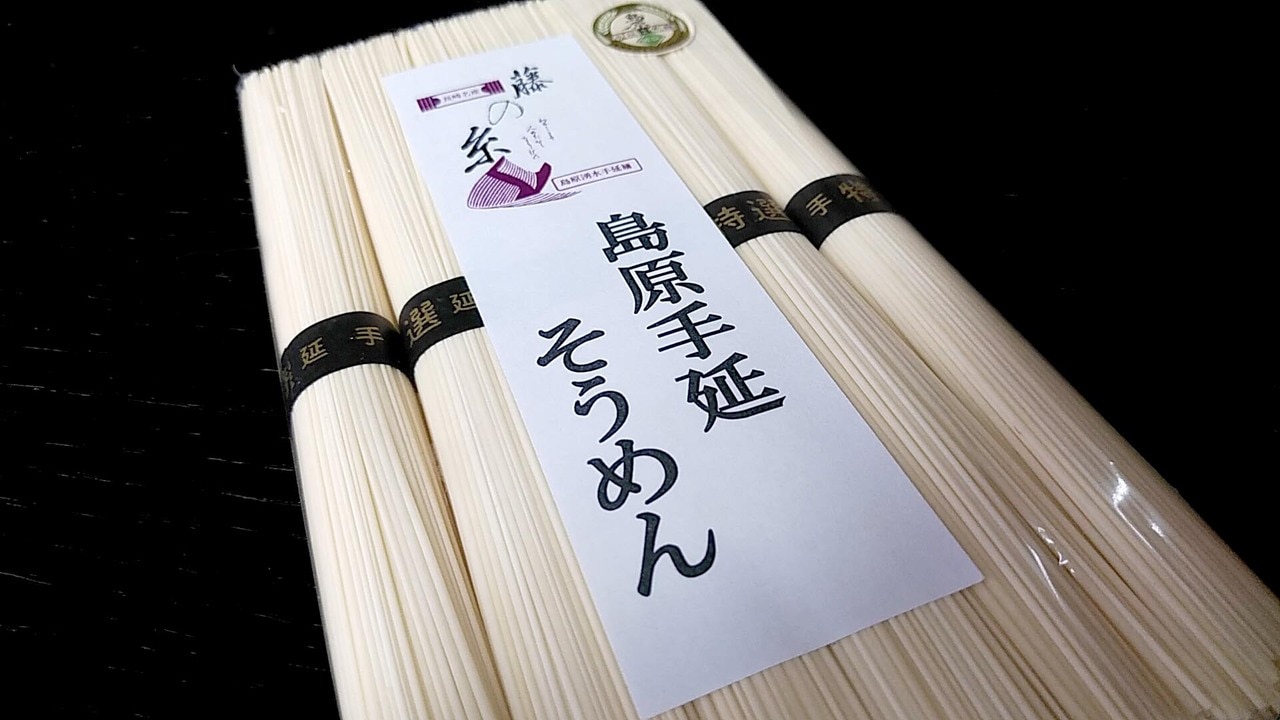 長崎名産
藤の糸
島原湧水手延麺
島原手延
そうめん
延 手
選 延
特選
手 特